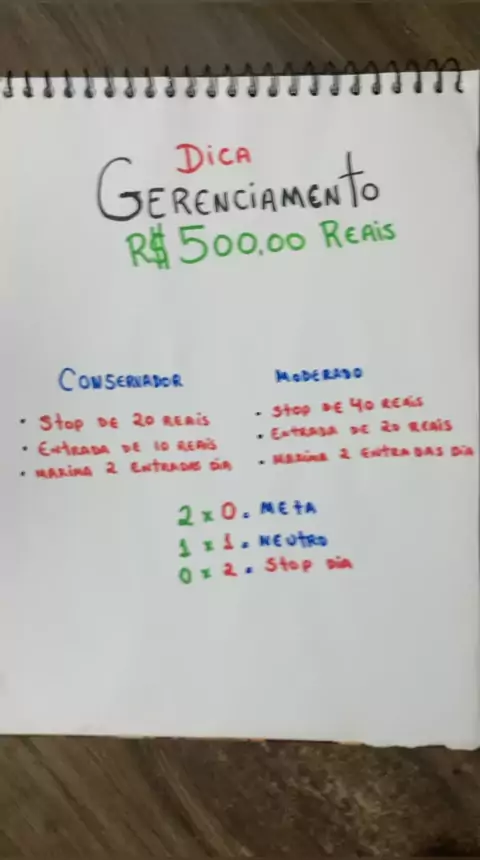 DICA
GERENCIAMENTO
R$ 500,00 REAIS
CONSERVADOR
• STOP DE 20 REAIS
• ENTRADA DE 10 REAIS
• MAXIMA 2 ENTRADAS DIA
MODERADO
• STOP DE 40 REAIS
• ENTRADA DE 20 REAIS
• MAXIMA 2 ENTRADAS DIA
2 x 0. META
1 x 1. NEUTRO
0 x 2. STOP DIA